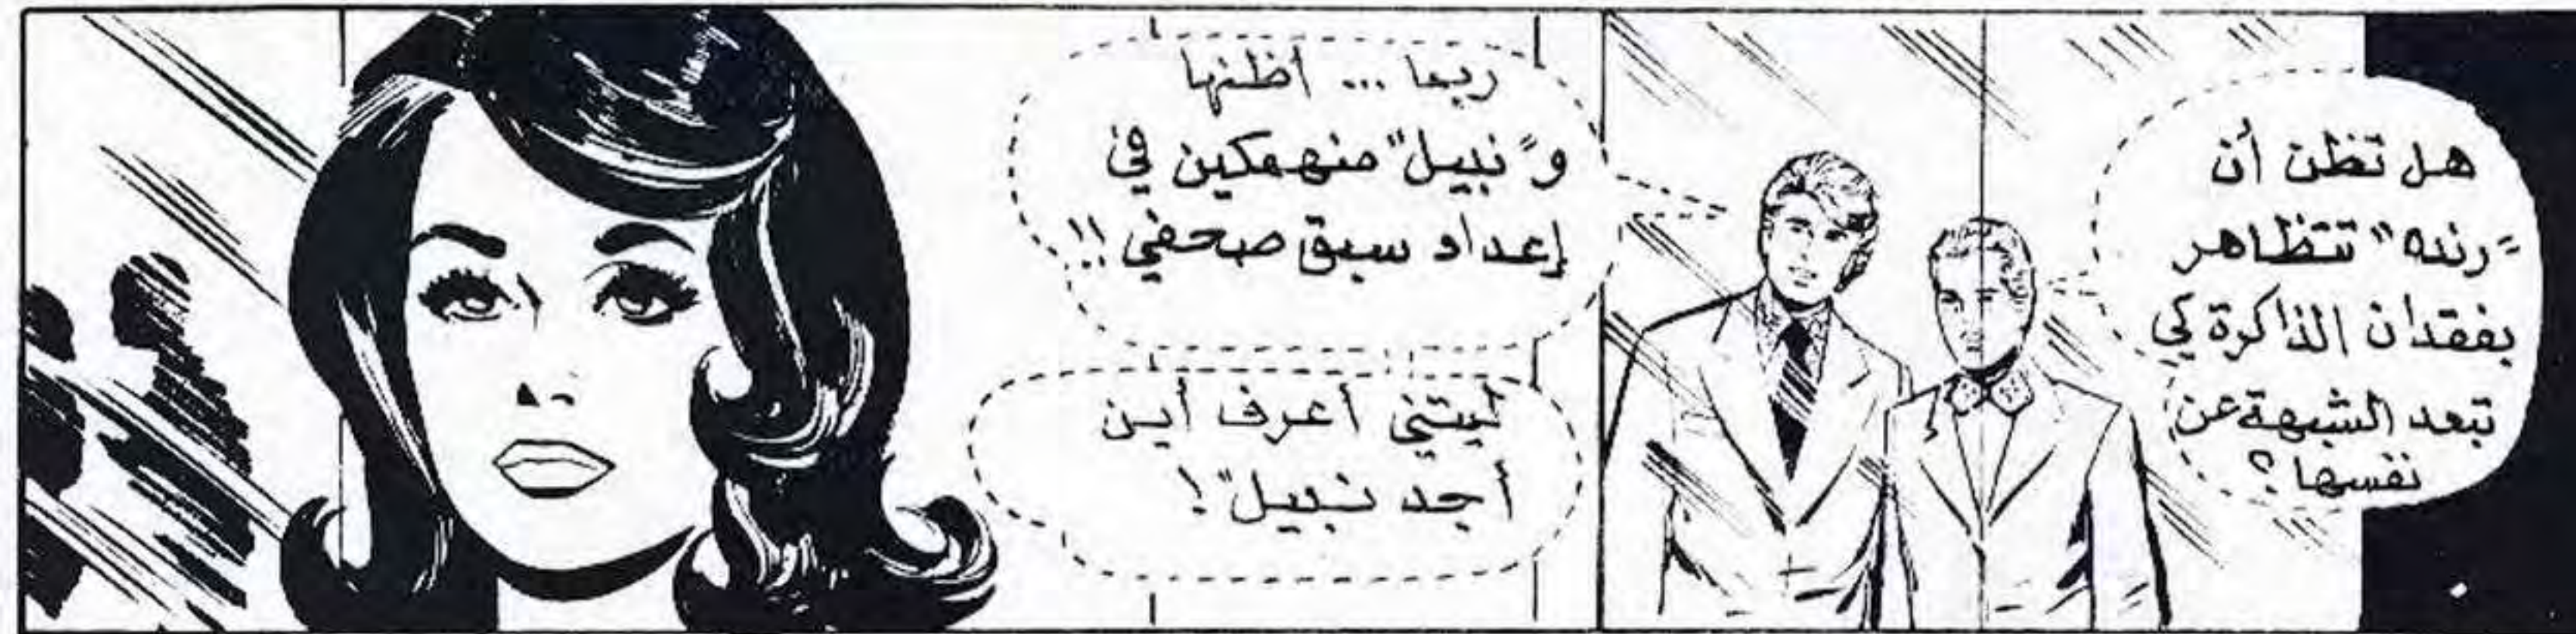 هل تظن أن
"رنده" تتظاهر
بفقدان الذاكرة كي
تبعد الشبهة عن
نفسها؟
ربما ... أظنها
و"نبيل" منهمكين في
إعداد سبق صحفي!!
ليتني أعرف أين
أجد نبيل"!